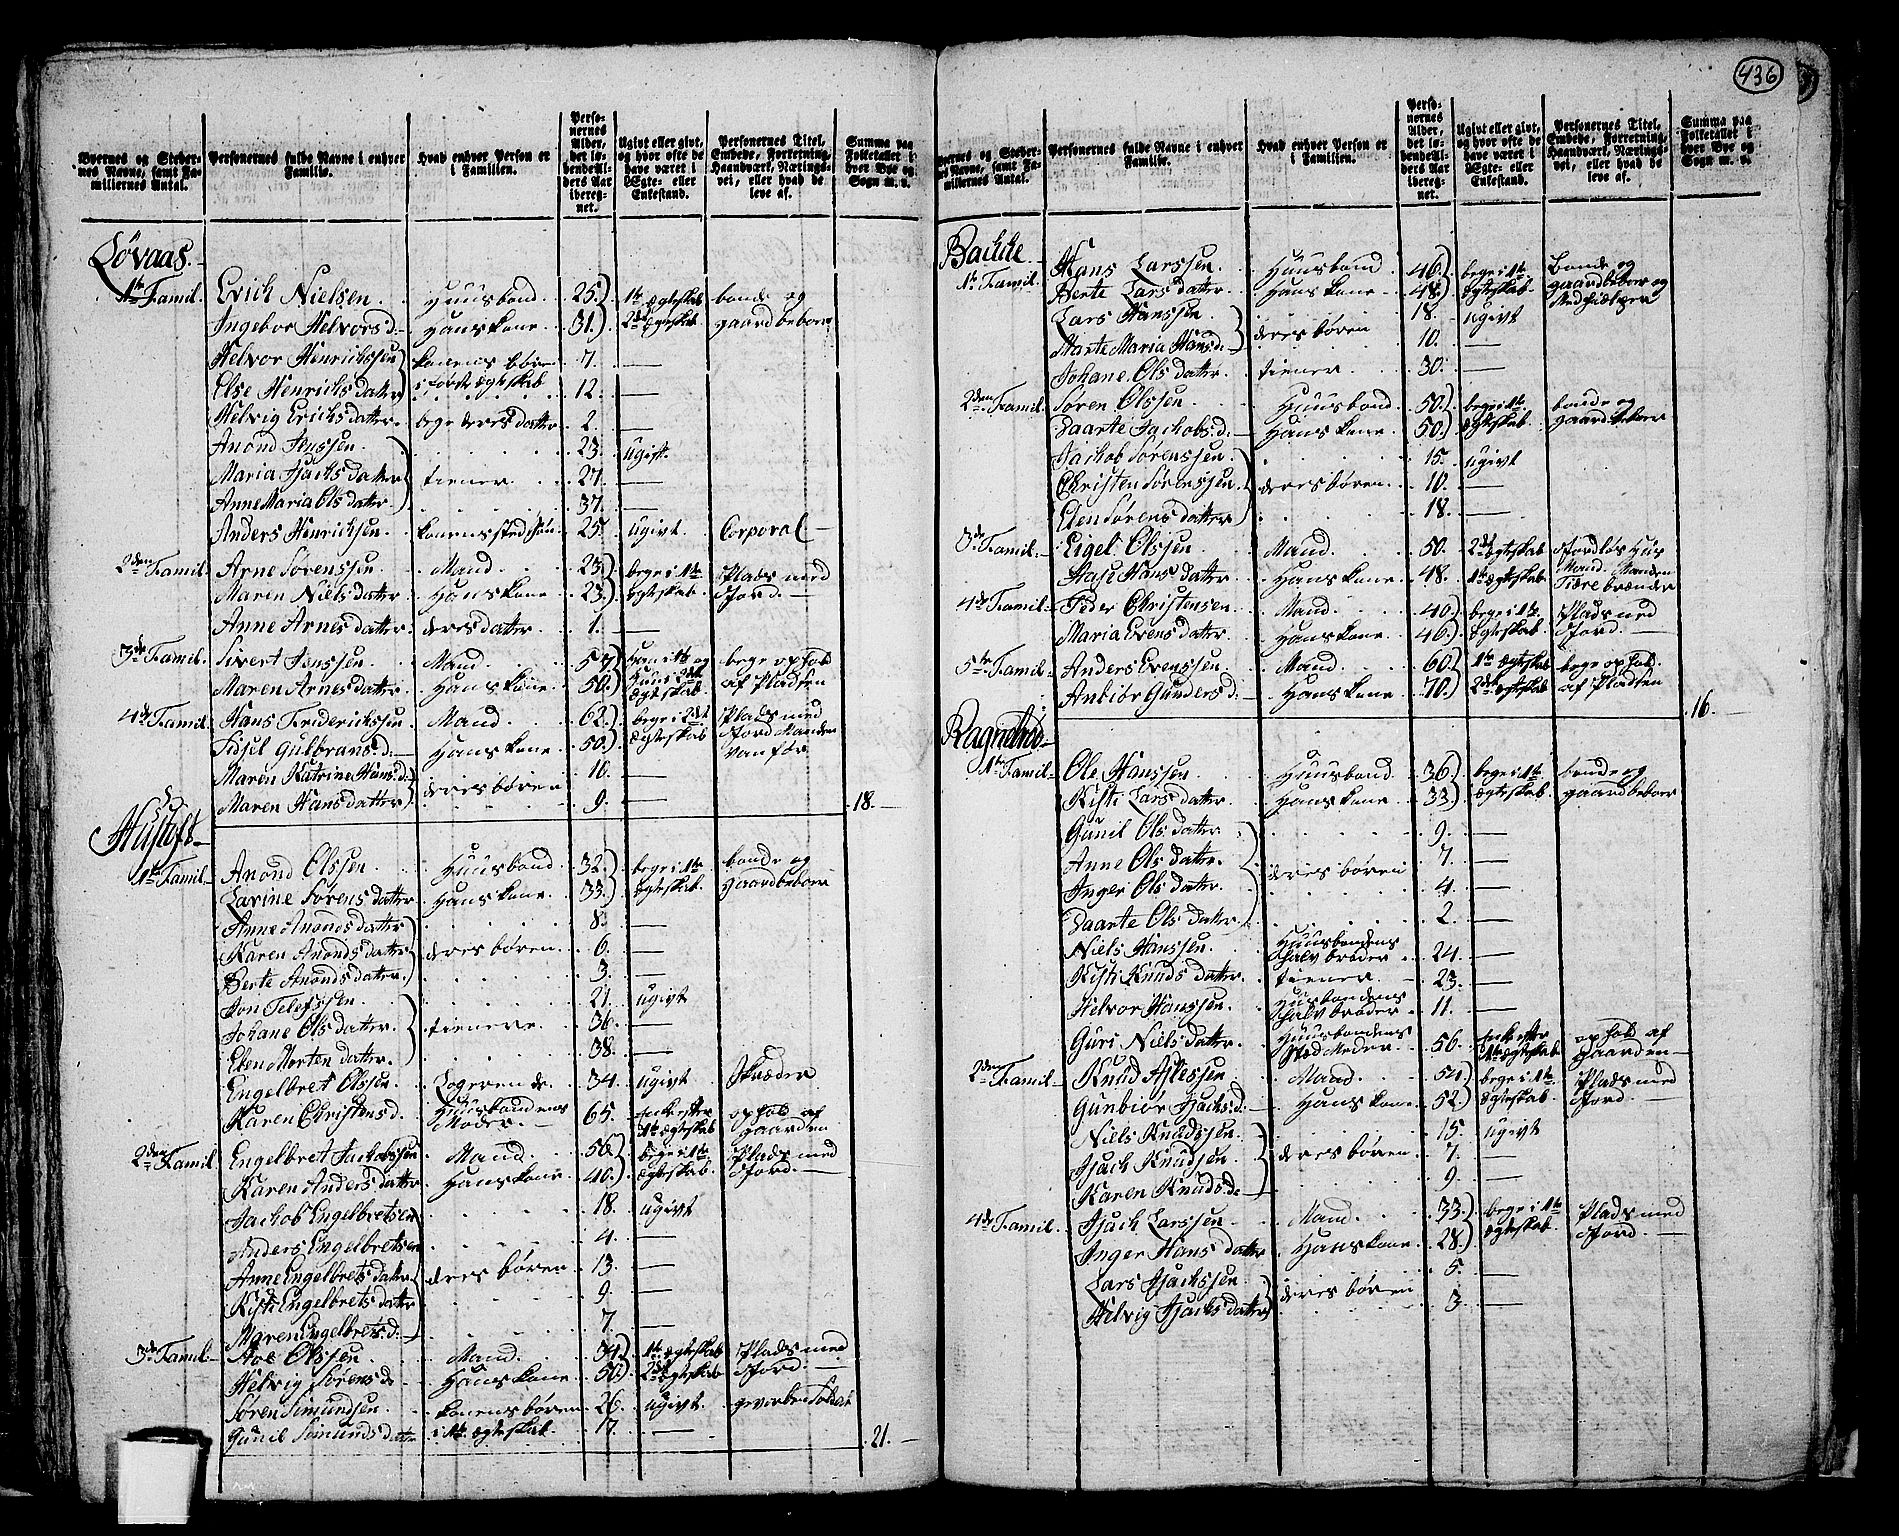 436
Byernes og Stedernes Navne, samt Familiernes Antal.
Personernes fulde Navne i enhver Familie.
Hvad enhver Person er i Familien.
Personernes Alder, det løbende Alders Aar iberegnet.
Ugivt eller givt, og hvor ofte de have været i Ægte- eller Enkestand.
Personernes Titel, Embede, Forretning, Haandværk, Næringsvei, eller hvad de leve af.
Summa paa Folketallet i hver Bye og Sogn m. v.
Løvaas.
1te Famil. Erich Nielsen. Huusbond. 25. 1te Ægteskab bonde og
Ingebor Helvors d. Hans kone 31. 2det Ægteskab gaardbeboer
Helvor Henrichssen konens børn 7. —
Else Henrichs datter i første ægteskab 12. —
Helvig Erichs datter. bege deres datter. 2. —
Anond Jenssen. 23. ugift.
Maria Isachs datter tiener. 27. —
Anne Maria Ols datter 37. —
Anders Henrichsen. konens stedsøn 25. ugivt Corporal —
2den Famil. Arne Sørenssen. Mand. 23. bege i 1te Plads med
Maren Niels datter. Hans kone. 23. Ægteskab. Jord. —
Anne Arnes datter. deres datter. 1. —
3de Famil. Sivert Jenssen. Mand. 57. han i 1te og bege ophold
Maren Arnes datter. Hans kone. 50. hun i 2det ægteskab af Pladsen
4de Famil. Hans Friderichssen Mand. 62. bege i 2det Plads med
Sidsel Gulbrans.d. Hans kone 50. Ægteskab Jord Manden vanfør.
Maren Katrine Hans.d. deres børen 10. —
Maren Hans datter 9. — 18. —
Hustoft —
1te Famil. Anond Olssen Huusbond. 32. bege i 1te bonde og
Larine Sørens datter Hans kone. 33. Ægteskab. gaardbeboer
Anne Anonds datter 8. —
Karen Anonds datter deres børen. 6. —
Berte Anonds datter. 3. —
Jon Telefssen 21. ugivt
Johane Ols datter. tienere. 36. —
Elen Morten datter. 38. —
Engelbret Olssen. Logerende. 34. ugivt Skræder
Karen Christens d. Huusbondens Moder. — 65. Enke efter 1te ægteskab ophold af gaarden
2den Famil Engelbret Jachobssen Mand. 56. bege i 1te Plads med
Karen Anders datter Hans kone 40. ægteskab. Jord. —
Jachob Engelbretsen 18. ugivt
Anders Engelbretsen 4. —
Anne Engelbrets datter deres børen 13. —
Kisti Engelbrets datter 9. —
Maren Engelbrets d. — 7. —
3de Famil. Ole Olssen. Mand. 34. 1te ægteskab Plads med
Helvig Sørens d. Hans kone 50. 2det ægteskab Jord. —
Søren Simundsen. konens børen 26. ugivt. geworben Soldat
Gunil Simunds datter i 1te ægteskab. 17. — 21. —
Byernes og Stedernes Navne, samt Familiernes Antal.
Personernes fulde Navne i enhver Familie.
Hvad enhver Person er i Familien.
Personernes Alder, det løbende Alders Aar iberegnet.
Ugivt eller givt, og hvor ofte de have været i Ægte- eller Enkestand.
Personernes Titel, Embede, Forretning, Haandværk, Næringsvei, eller hvad de leve af.
Summa paa Folketallet i hver Bye og Sogn m. v.
Bakke.
1te Famil. Hans Larssen. Huusbond 46. bege i 1te Bonde og
Berte Lars datter. Hans kone. 48. Ægteskab. gaardbeboer og
Lars Hanssen 18. ugivt
Marte Maria Hans d. deres børen 10. —
Johane Ols datter tiener 30. —
2den Famil. Søren Olssen Huusbond. 50. bege i 1te bonde og
Daarte Jachobs.d. — Hans kone 50. Ægteskab gaardbeboer
Jachob Sørenssen 15. ugivt
Christen Sørenssen. deres børen. 10. —
Elen Sørens datter 18. —
3de Famil. Eigel Olssen Mand. 50. 2det ægteskab Jordløs Huus
Aase Hans datter Hans kone 48. 1te ægteskab Mand. Manden Tiære brænder
4de Famil. Peder Christensen Mand. 40. bege i 1te Plads med
Maria Evens datter Hans kone. 46. Ægteskab Jord. —
5te Famil. Anders Evenssen. Mand. 60. 1te Ægteskab bege ophold.
Anbiør Gunders d. — Hans kone. 70. 2det ægteskab af Pladsen
16. —
Ragnelrød. —
1te Famil. Ole Hanssen Huusbond 36. bege i 1te bonde og
Kisti Lars datter. Hans kone 33. ægteskab. gaardbeboer
Gunil Ols datter 9. —
Anne Ols datter. deres børen 7. —
Inger Ols datter. 4. —
Daarte Ols datter 2. —
Niels Hanssen. Huusbondens halv broder 24. —
Kisti Knuds datter. tiener 23. —
Helvor Hanssen. Husbondens halv broder 11. —
Guri Niels datter Huusbondens sted Moder 56. Enke efter 1te ægteskab ophold af gaarden —
2den Famil Knud Aslessen Mand. 54. bege i 1te Plads med
Gunbiør Isachs.d. — Hans kone. 52. ægteskab. Jord. —
Niels Knudssen. 15. ugivt
Isach Knudsen deres børen. 7. —
Karen Knuds.d. — 9. —
4de Famil. Isach Larssen Mand. 33. bege i 1te Plads med
Inger Hans datter Hans kone. 28. ægteskab. Jord. —
Lars Isachssen. deres børen 5. —
Helvig Isachs datter 3. —